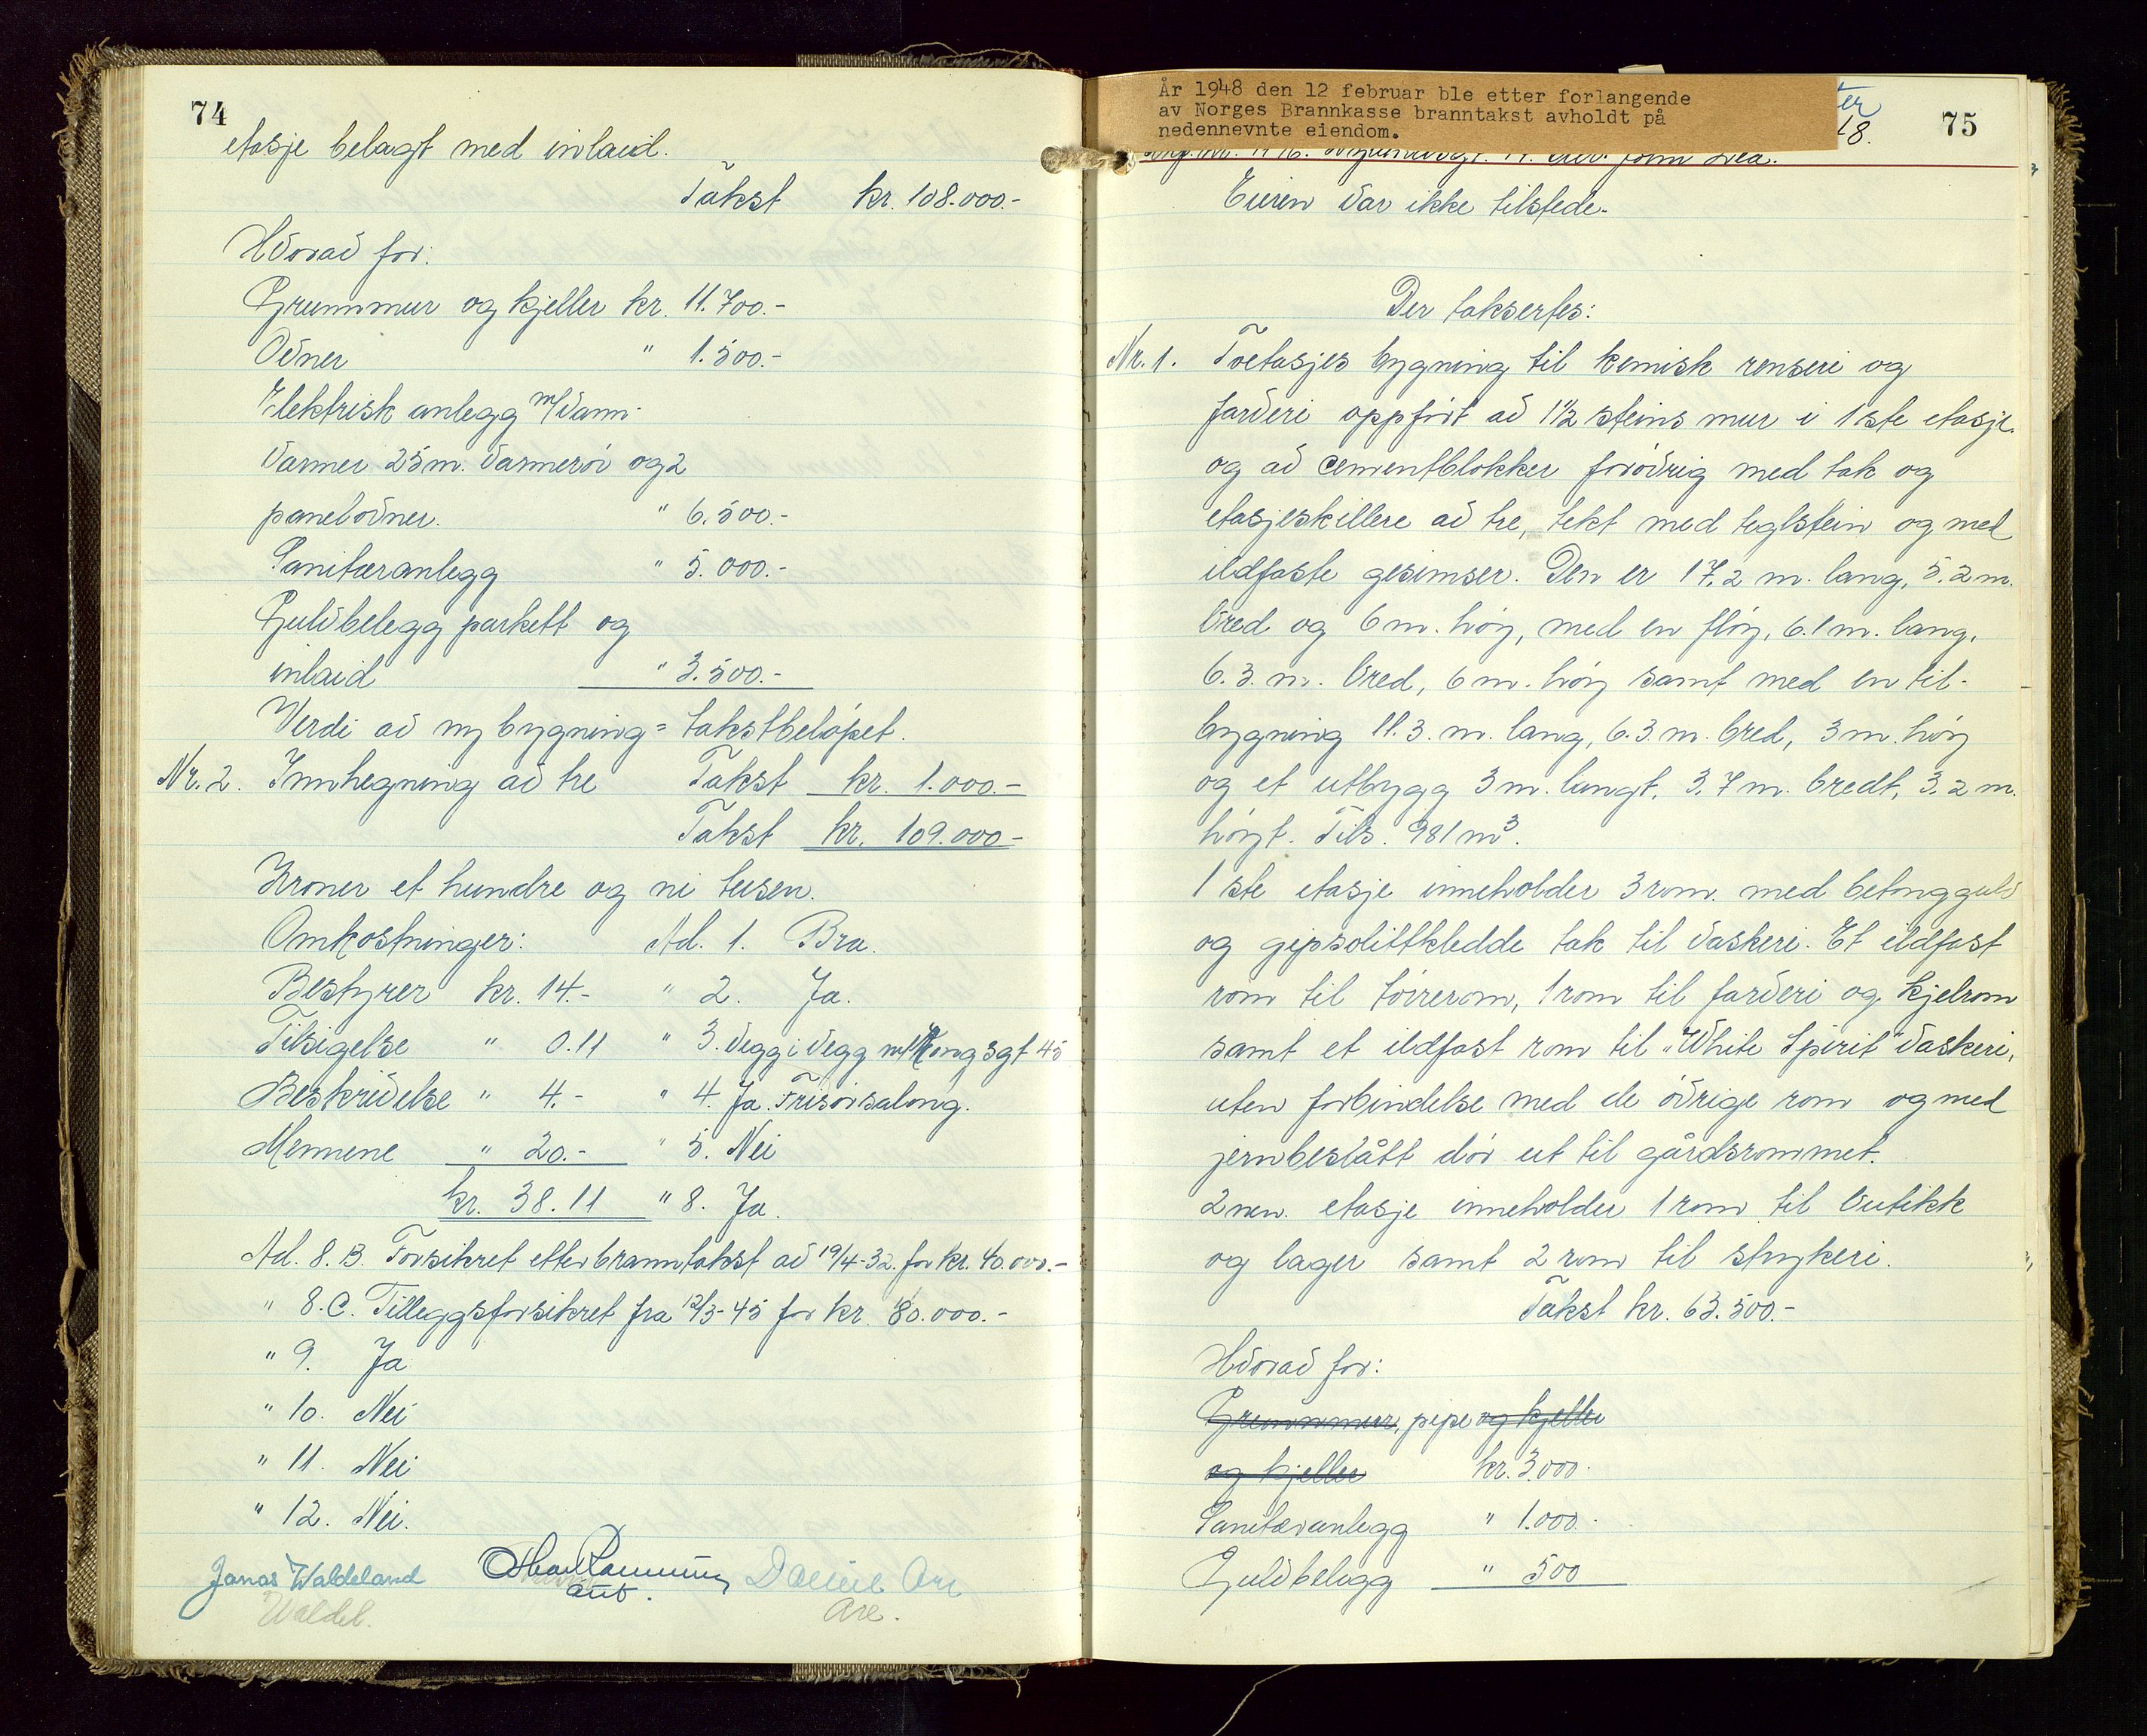 74
etasje belagt med inlaid.
Takst kr. 108.000.-
Hvorav for:
Grunnmur og kjeller kr. 11.700.-
Ovner " 1.500.-
Elektrisk anlegg m/vann-
varmer 25m. varmerör og 2
panelovner. " 6.500.-
Sanitæranlegg " 5.000.-
Gulvbelegg parkett og
inlaid " 3.500.-
Verdi av ny bygning = takstbelöpet.
Nr. 2. Innhegning av tre Takst kr. 1.000.-
Takst kr. 109.000.-
Kroner et hundre og ni tusen.
Omkostninger: Ad. 1. Bra.
Bestyrer kr. 14.- " 2. Ja.
Tilsigelse " 0.11 " 3. Vegg i vegg m/Kongsgt 45
Beskrivelse " 4.- " 4. Ja. Frisörsalong.
Mennene " 20.- " 5. Nei
kr. 38.11 " 8. Ja.
Ad. 8. B. Forsikret etter branntakst av 19/4-32. for kr. 40.000.-
" 8. C. Tilleggsforsikret fra 12/3-45 for kr. 80.000.-
" 9. Ja
" 10. Nei
" 11. Nei
" 12. Nei.
Jonas Waldeland Daniel Are
Waldel. Are.
År 1948 den 12 februar ble etter forlangende
av Norges Brannkasse branntakst avholdt på
nedennevnte eiendom.
75
18.
Eieren var ikke tilstede.
Der taksertes:
Nr. 1. Toetasjes bygning til kemisk renseri og
farveri oppfört av 1 1/2 steins mur i 1ste etasje.
og av cementblokker forövrig med tak og
etasjeskillere av tre, tekt med teglstein og med
ildfaste gesimser. Den er 17,2 m. lang, 5.2 m.
bred og 6 m. höy, med en flöy, 6.1 m. lang,
6.3. m. bred, 6 m. höy samt med en til-
bygning 11.3. m. lang, 6.3 m. bred, 3 m. höy
og et utbygg 3 m. langt, 3.7 m. bredt, 3.2 m.
höyt. Tils. 981 m3.
1ste etasje inneholder 3 rom. med betonggulv
og gipsolittkledde tak til vaskeri. Et ildfast
rom til törrerom, 1 rom til farveri og kjelrom
samt et ildfast rom til "White Spirit" vaskeri,
uten forbindelse med de övrige rom og med
jernbeslått dör ut til gårdsrommet.
2nen. etasje inneholder 1 rom til butikk
og lager samt 2 rom til strykeri.
Takst kr. 63.500.-
Hvorav for:
Grunnmur, pipe og kjeller
og kjeller kr. 3.000.-
Sanitæranlegg " 1.000.-
Gulvbelegg " 500